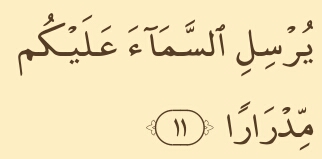 يُرْسِلِ ٱلسَّمَآءَ عَلَيْكُم
مِّدْرَارًا ١١